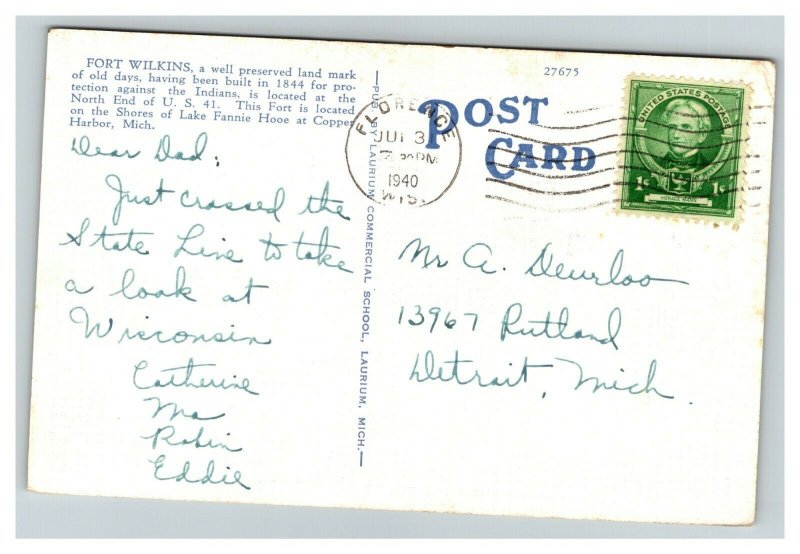 FORT WILKINS, a well preserved land mark
of old days, having been built in 1844 for pro-
tection against the Indians, is located at the
North End of U. S. 41. This Fort is located
on the Shores of Lake Fannie Hooe at Copper
Harbor, Mich.
Dear Dad,
Just crossed the
State Line to take
a look at
Wisconsin
Catherine
Ma
Robin
Eddie
—PUB. BY LAURIUM COMMERCIAL SCHOOL, LAURIUM, MICH.—
27675
POST
CARD
FLORENCE
1940
WIS.
UNITED STATES POSTAGE
1¢ 1¢
HORACE MANN
Mr A. Deurloo
13967 Rutland
Detroit, Mich.